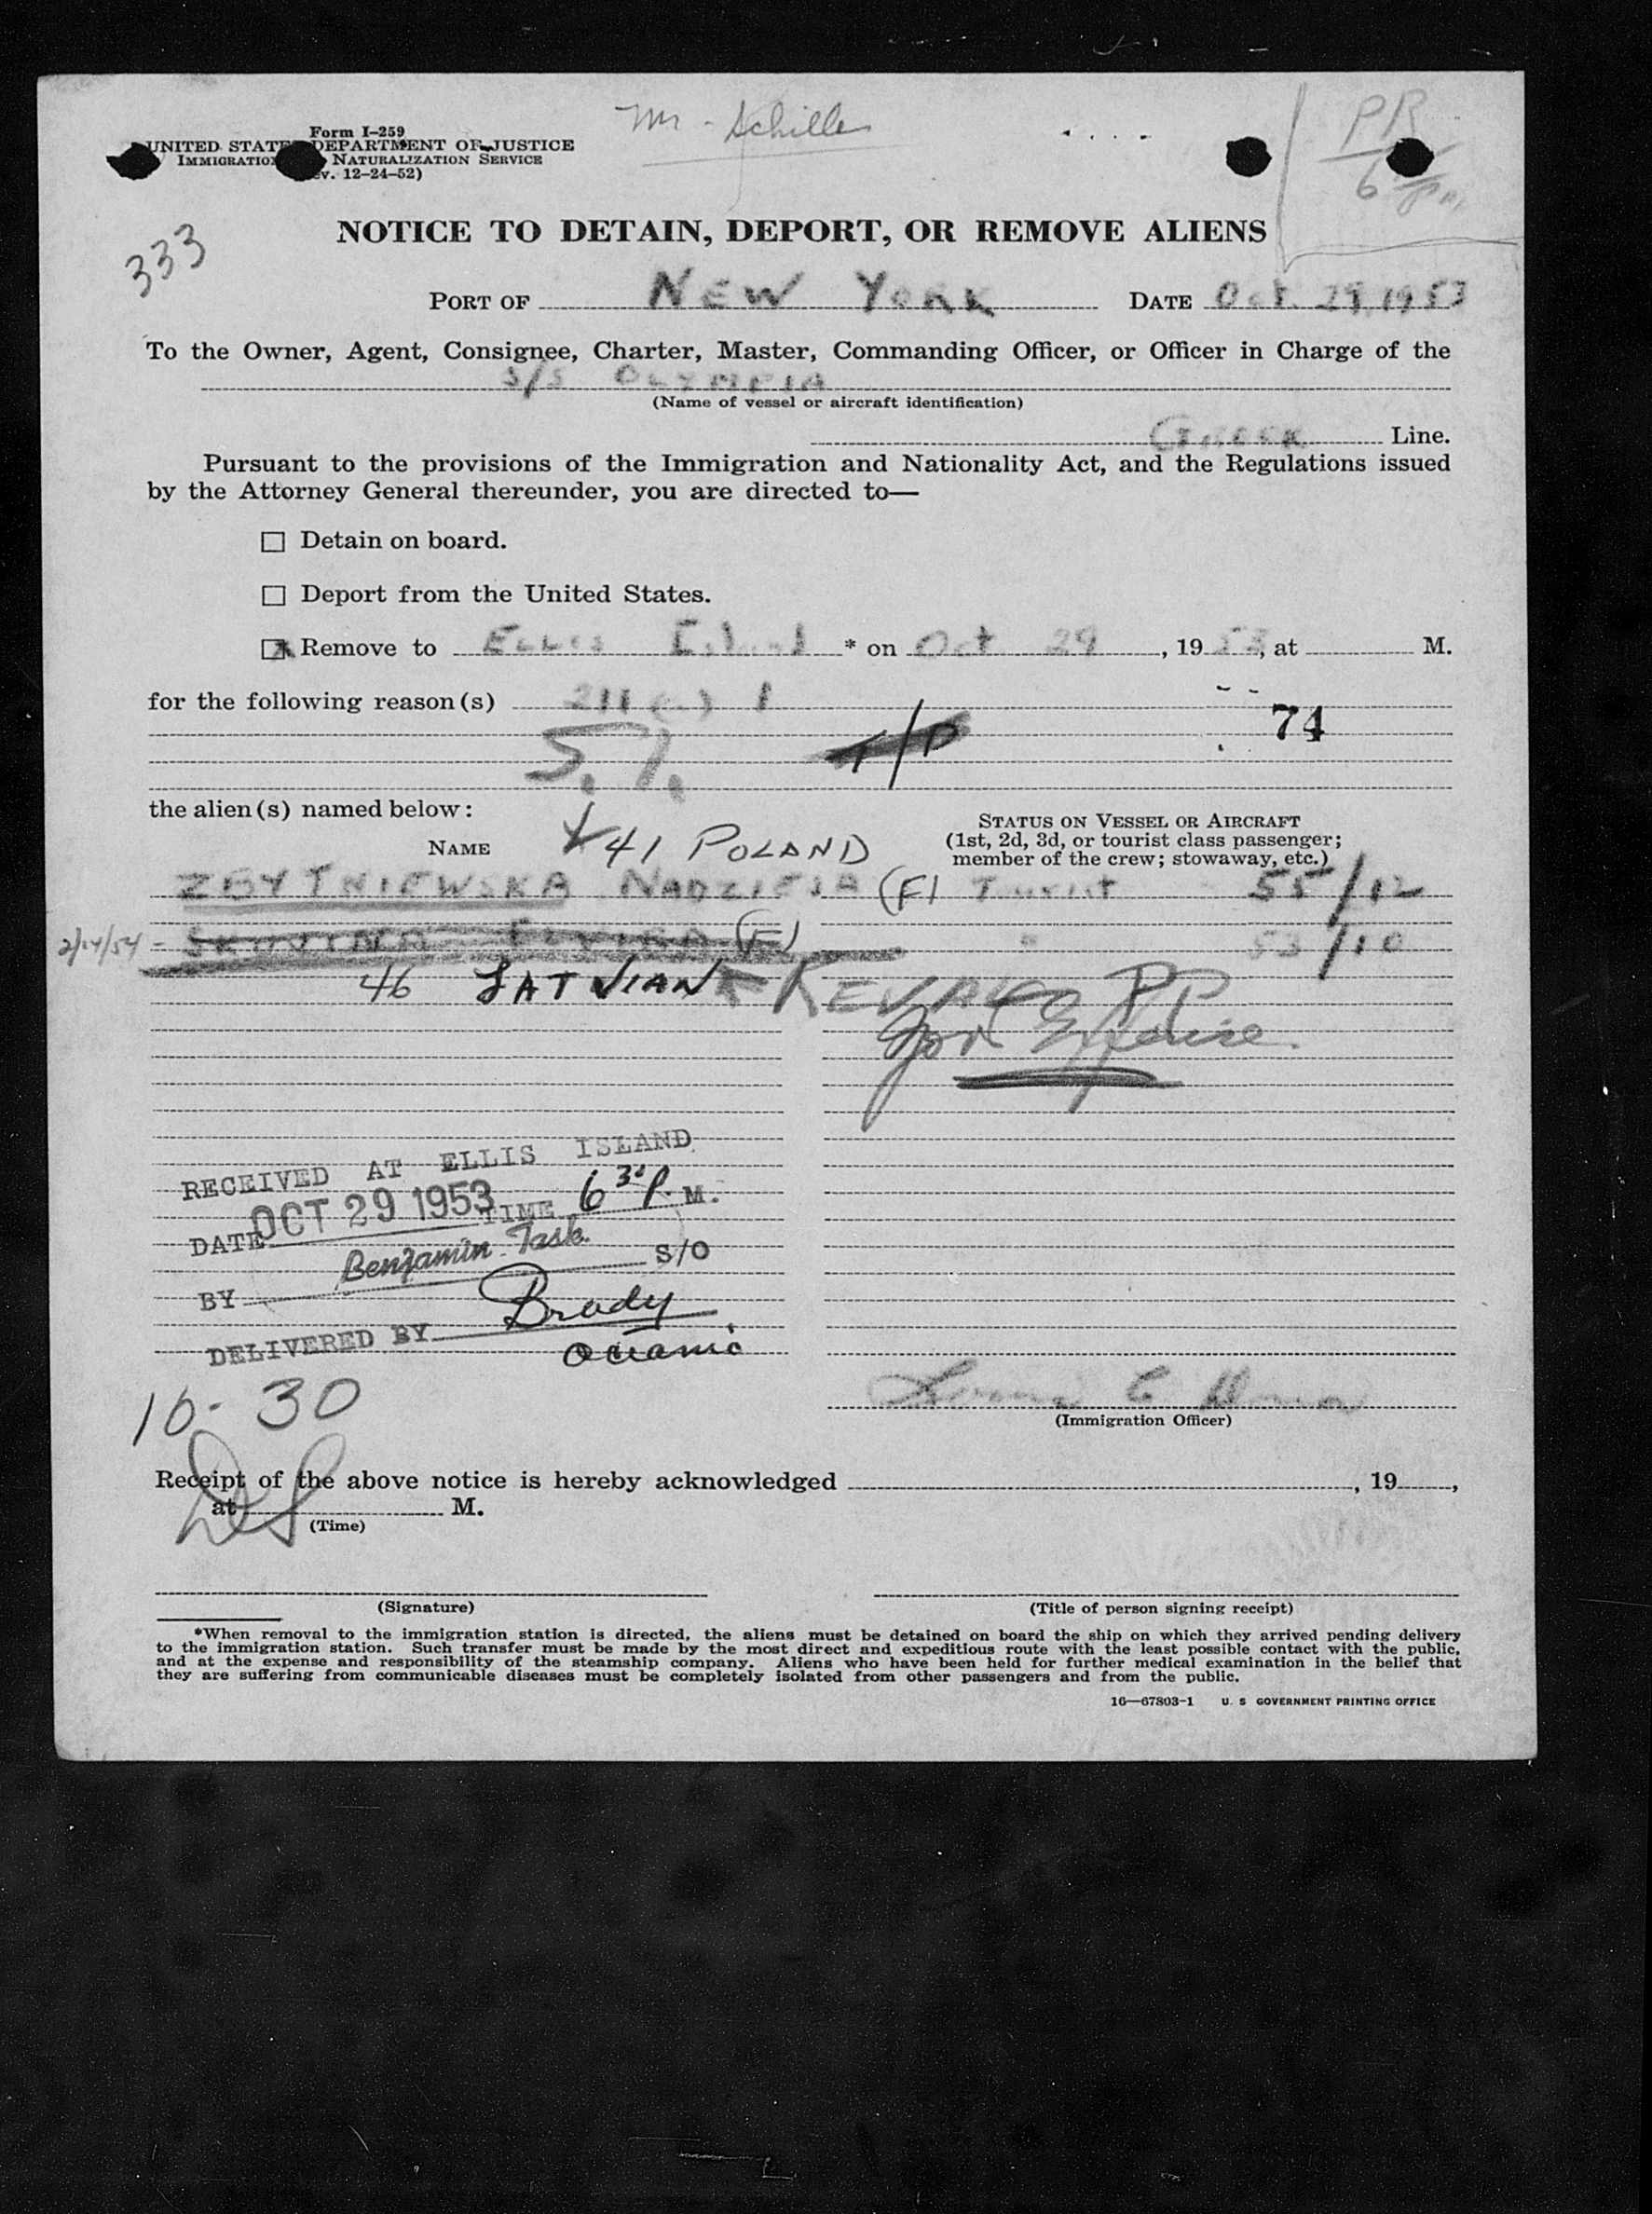 Mr. Achille
PR
6
Form I-259
UNITED STATES DEPARTMENT OF JUSTICE
IMMIGRATION NATURALIZATION SERVICE
v. 12-24-52)
333
NOTICE TO DETAIN, DEPORT, OR REMOVE ALIENS
PORT OF NEW YORK DATE Oct. 29, 1953
To the Owner, Agent, Consignee, Charter, Master, Commanding Officer, or Officer in Charge of the
S/S OLYMPIA
(Name of vessel or aircraft identification)
GREEK Line.
Pursuant to the provisions of the Immigration and Nationality Act, and the Regulations issued
by the Attorney General thereunder, you are directed to—
☐ Detain on board.
☐ Deport from the United States.
☒ Remove to ELLIS Island * on Oct 29, 1953, at M.
for the following reason(s) 211
74
T/P
the alien(s) named below:
NAME
41 POLAND
STATUS ON VESSEL OR AIRCRAFT
(1st, 2d, 3d, or tourist class passenger;
member of the crew; stowaway, etc.)
ZBYTNIEWSKA NADZIEJA (F) Tourist 55/12
2/14/54 (F) " 53/10
46 LATVIAN
PP
for
RECEIVED AT ELLIS ISLAND
DATE OCT 29 1953 TIME 6 30 P. M.
BY Benjamin Task S/O
DELIVERED BY Brady
Oceanic
10-30
(Immigration Officer)
Receipt of the above notice is hereby acknowledged , 19 ,
at M.
(Time)
(Signature) (Title of person signing receipt)
*When removal to the immigration station is directed, the aliens must be detained on board the ship on which they arrived pending delivery
to the immigration station. Such transfer must be made by the most direct and expeditious route with the least possible contact with the public,
and at the expense and responsibility of the steamship company. Aliens who have been held for further medical examination in the belief that
they are suffering from communicable diseases must be completely isolated from other passengers and from the public.
16—67803-1 U. S GOVERNMENT PRINTING OFFICE